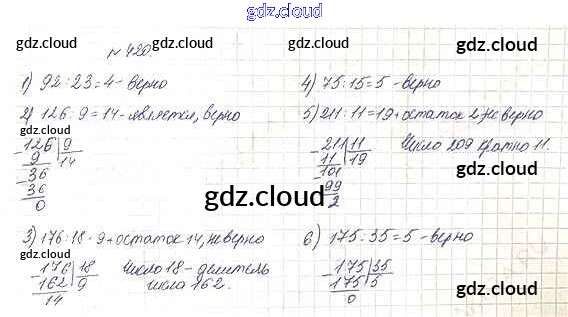 gdz.cloud
gdz.cloud gdz.cloud
№ 420.
1) 92 : 23 = 4 - верно
2) 126 : 9 = 14 - является, верно
gdz.cloud
126 | 9
9 | 14
36
36
0
3) 176 : 18 - 9 + остаток 14, неверно
176 | 18
162 | 9
14
Число 18 - делитель
числа 162.
gdz.cloud
4) 75 : 15 = 5 - верно
5) 211 : 11 = 19 + остаток 2, неверно
211 | 11
11 | 19
101
99
2
Число 209 кратно 11.
gdz.cloud
gdz.cloud
6) 175 : 35 = 5 - верно
175 | 35
175 | 5
0
gdz.cloud gdz.cloud
gdz.cloud